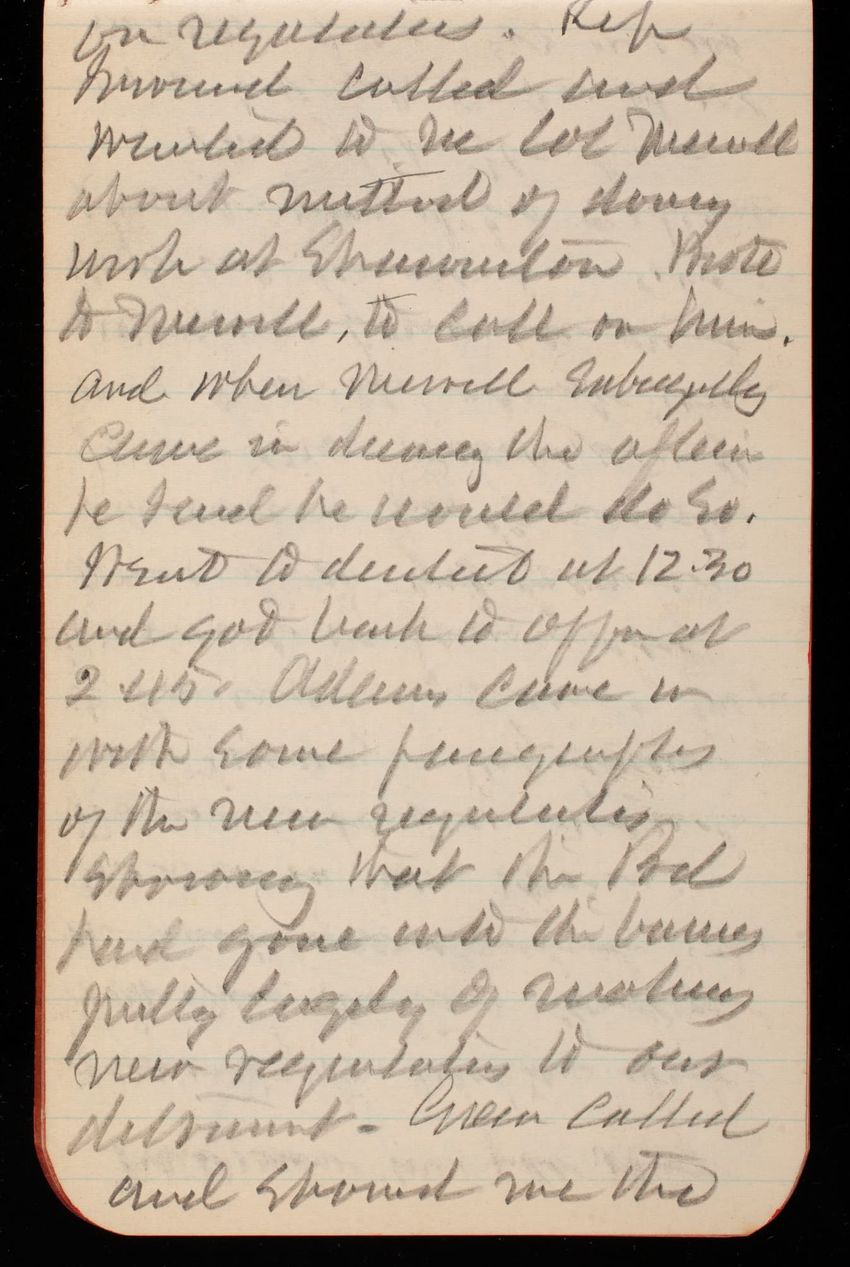 on regulations. Rep
called and
wanted to see Col Merrill
about method of doing
work at. Wrote
to Merrill, to call on him.
and when Merrill subsequently
came in during the aftern
he said he would do so.
Went to dentist at 12.30
and got back to office at
2.45. Adams came in
with some paragraphs
of the new regulations
showing that the Bd
had gone into the business
pretty largely of making
new regulations to our
detriment - Green called
and showed me the